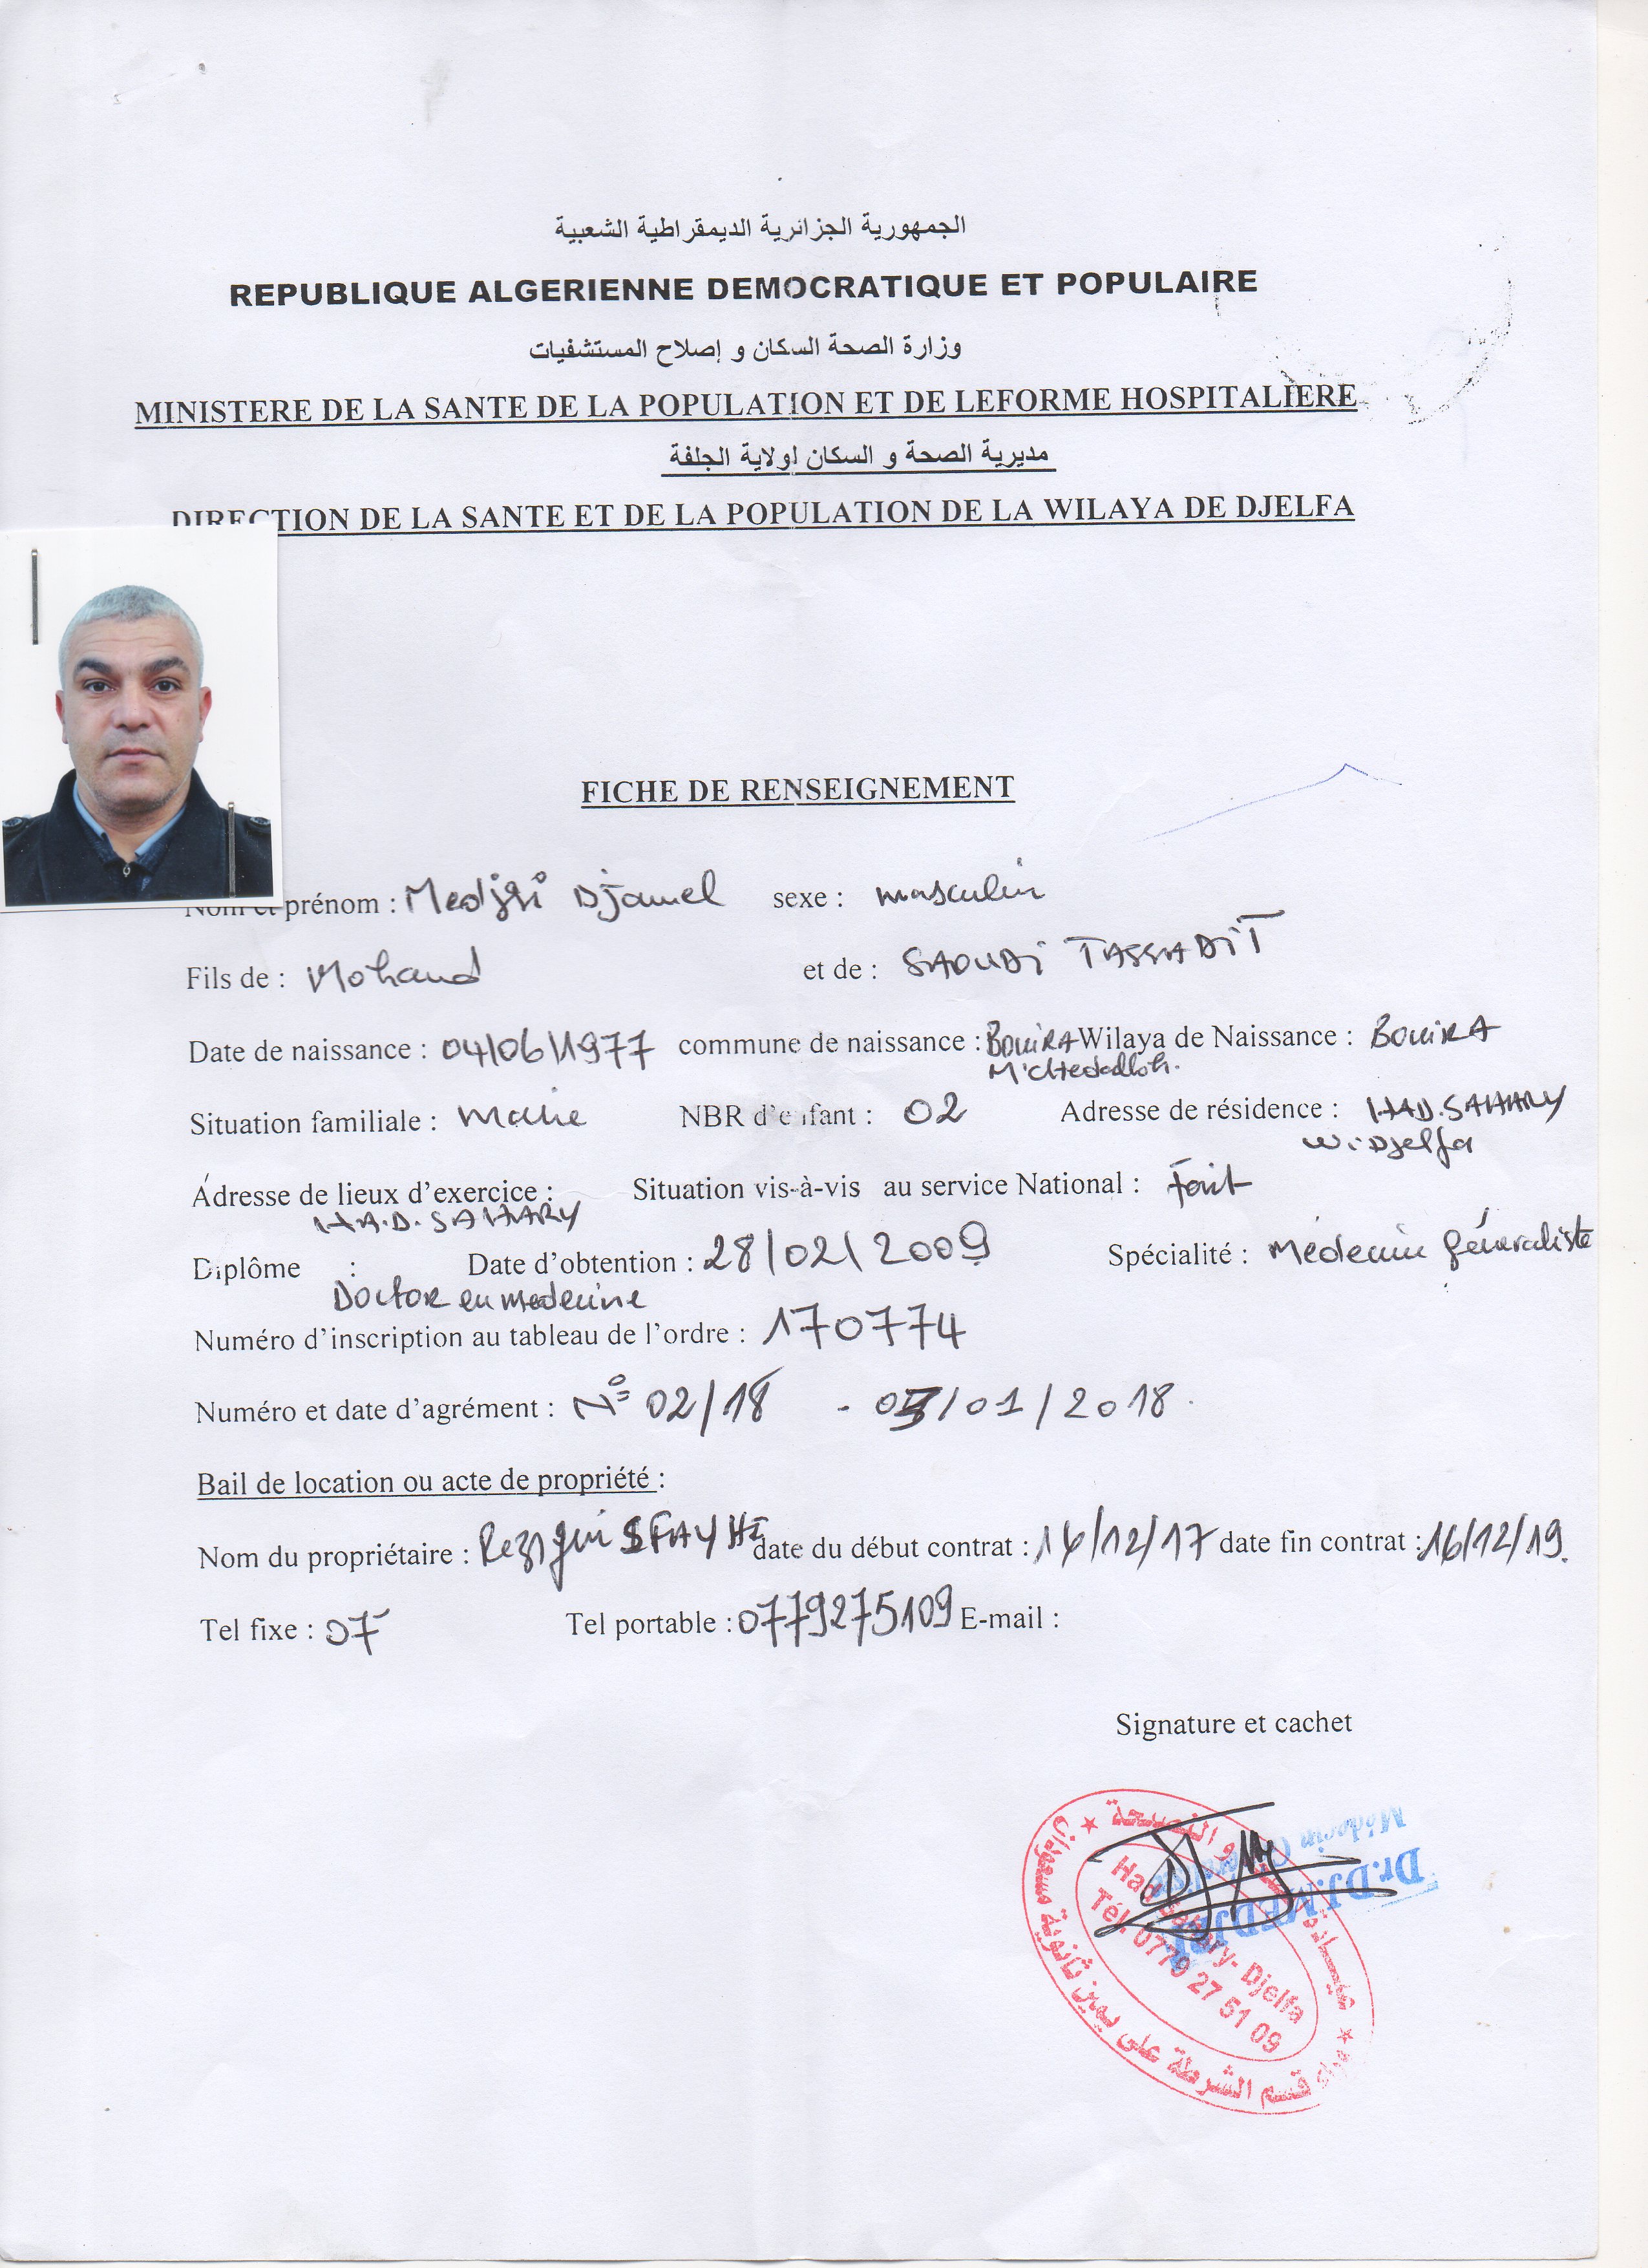 الجمهورية الجزائرية الديمقراطية الشعبية
REPUBLIQUE ALGERIENNE DEMOCRATIQUE ET POPULAIRE
وزارة الصحة السكان و إصلاح المستشفيات
MINISTERE DE LA SANTE DE LA POPULATION ET DE LEFORME HOSPITALIERE
مديرية الصحة و السكان لولاية الجلفة
DIRECTION DE LA SANTE ET DE LA POPULATION DE LA WILAYA DE DJELFA
FICHE DE RENSEIGNEMENT
Nom et prénom : Medjri Djamel sexe : masculin
Fils de : Mohand et de : SAOUDi TASSADIT
Date de naissance : 04/06/1977 commune de naissance : BouiRA Wilaya de Naissance : BouiRA
M'chedallah.
Situation familiale : Marie NBR d'enfant : 02 Adresse de résidence : HAD.SAHARY
W.Djelfa
Adresse de lieux d'exercice : Situation vis-à-vis au service National :
HA.D.SAHARY
Diplôme : Date d'obtention : 28/02/2009 Spécialité : Médecin généraliste
Doctor en medecine
Numéro d'inscription au tableau de l'ordre : 170774
Numéro et date d'agrément : N° 02/18 - /01/2018.
Bail de location ou acte de propriété :
Nom du propriétaire : date du début contrat : /12/17 date fin contrat : 16/12/19.
Tel fixe : 07 Tel portable : 0779275109 E-mail :
Signature et cachet
Médecin
Dr.DJ.MEDJRI
Had Sahary- Djelfa
Tél. 0779 27 51 09
قسم الشرطة على يمين ثانوية